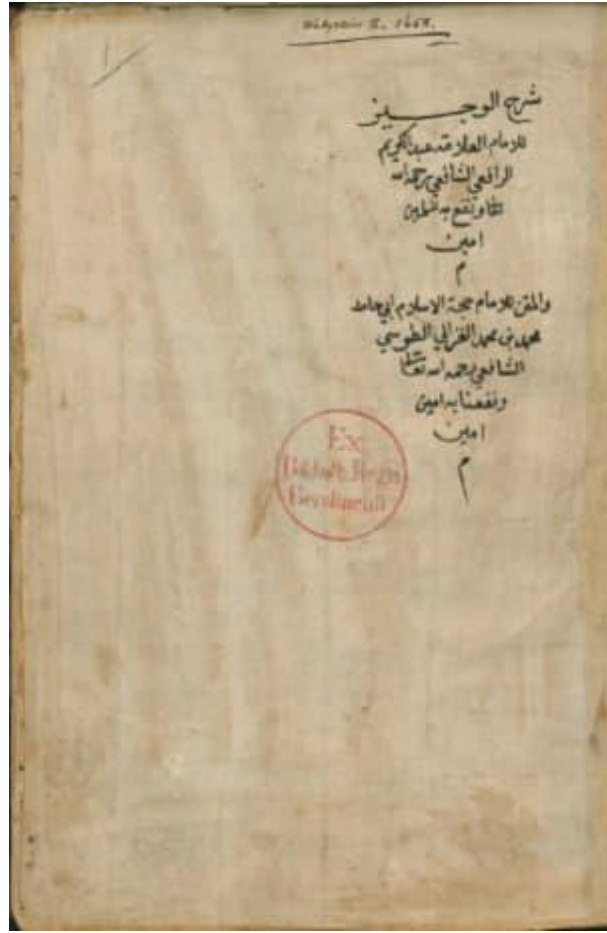 Wetzstein II. 1658.
1
شرح الوجــيز
للامام العلامة عبد الكريم
الرافعي الشافعي رحمه الله
تعالى ونفع به المسلمين
امين
م
والمتن للامام حجة الاسلام ابي حامد
محمد بن محمد الغزالي الطوسي
الشافعي رحمه الله تعالى
ونفعنا به امين
امين
م
Ex
Biblioth. Regia
Berolinensi